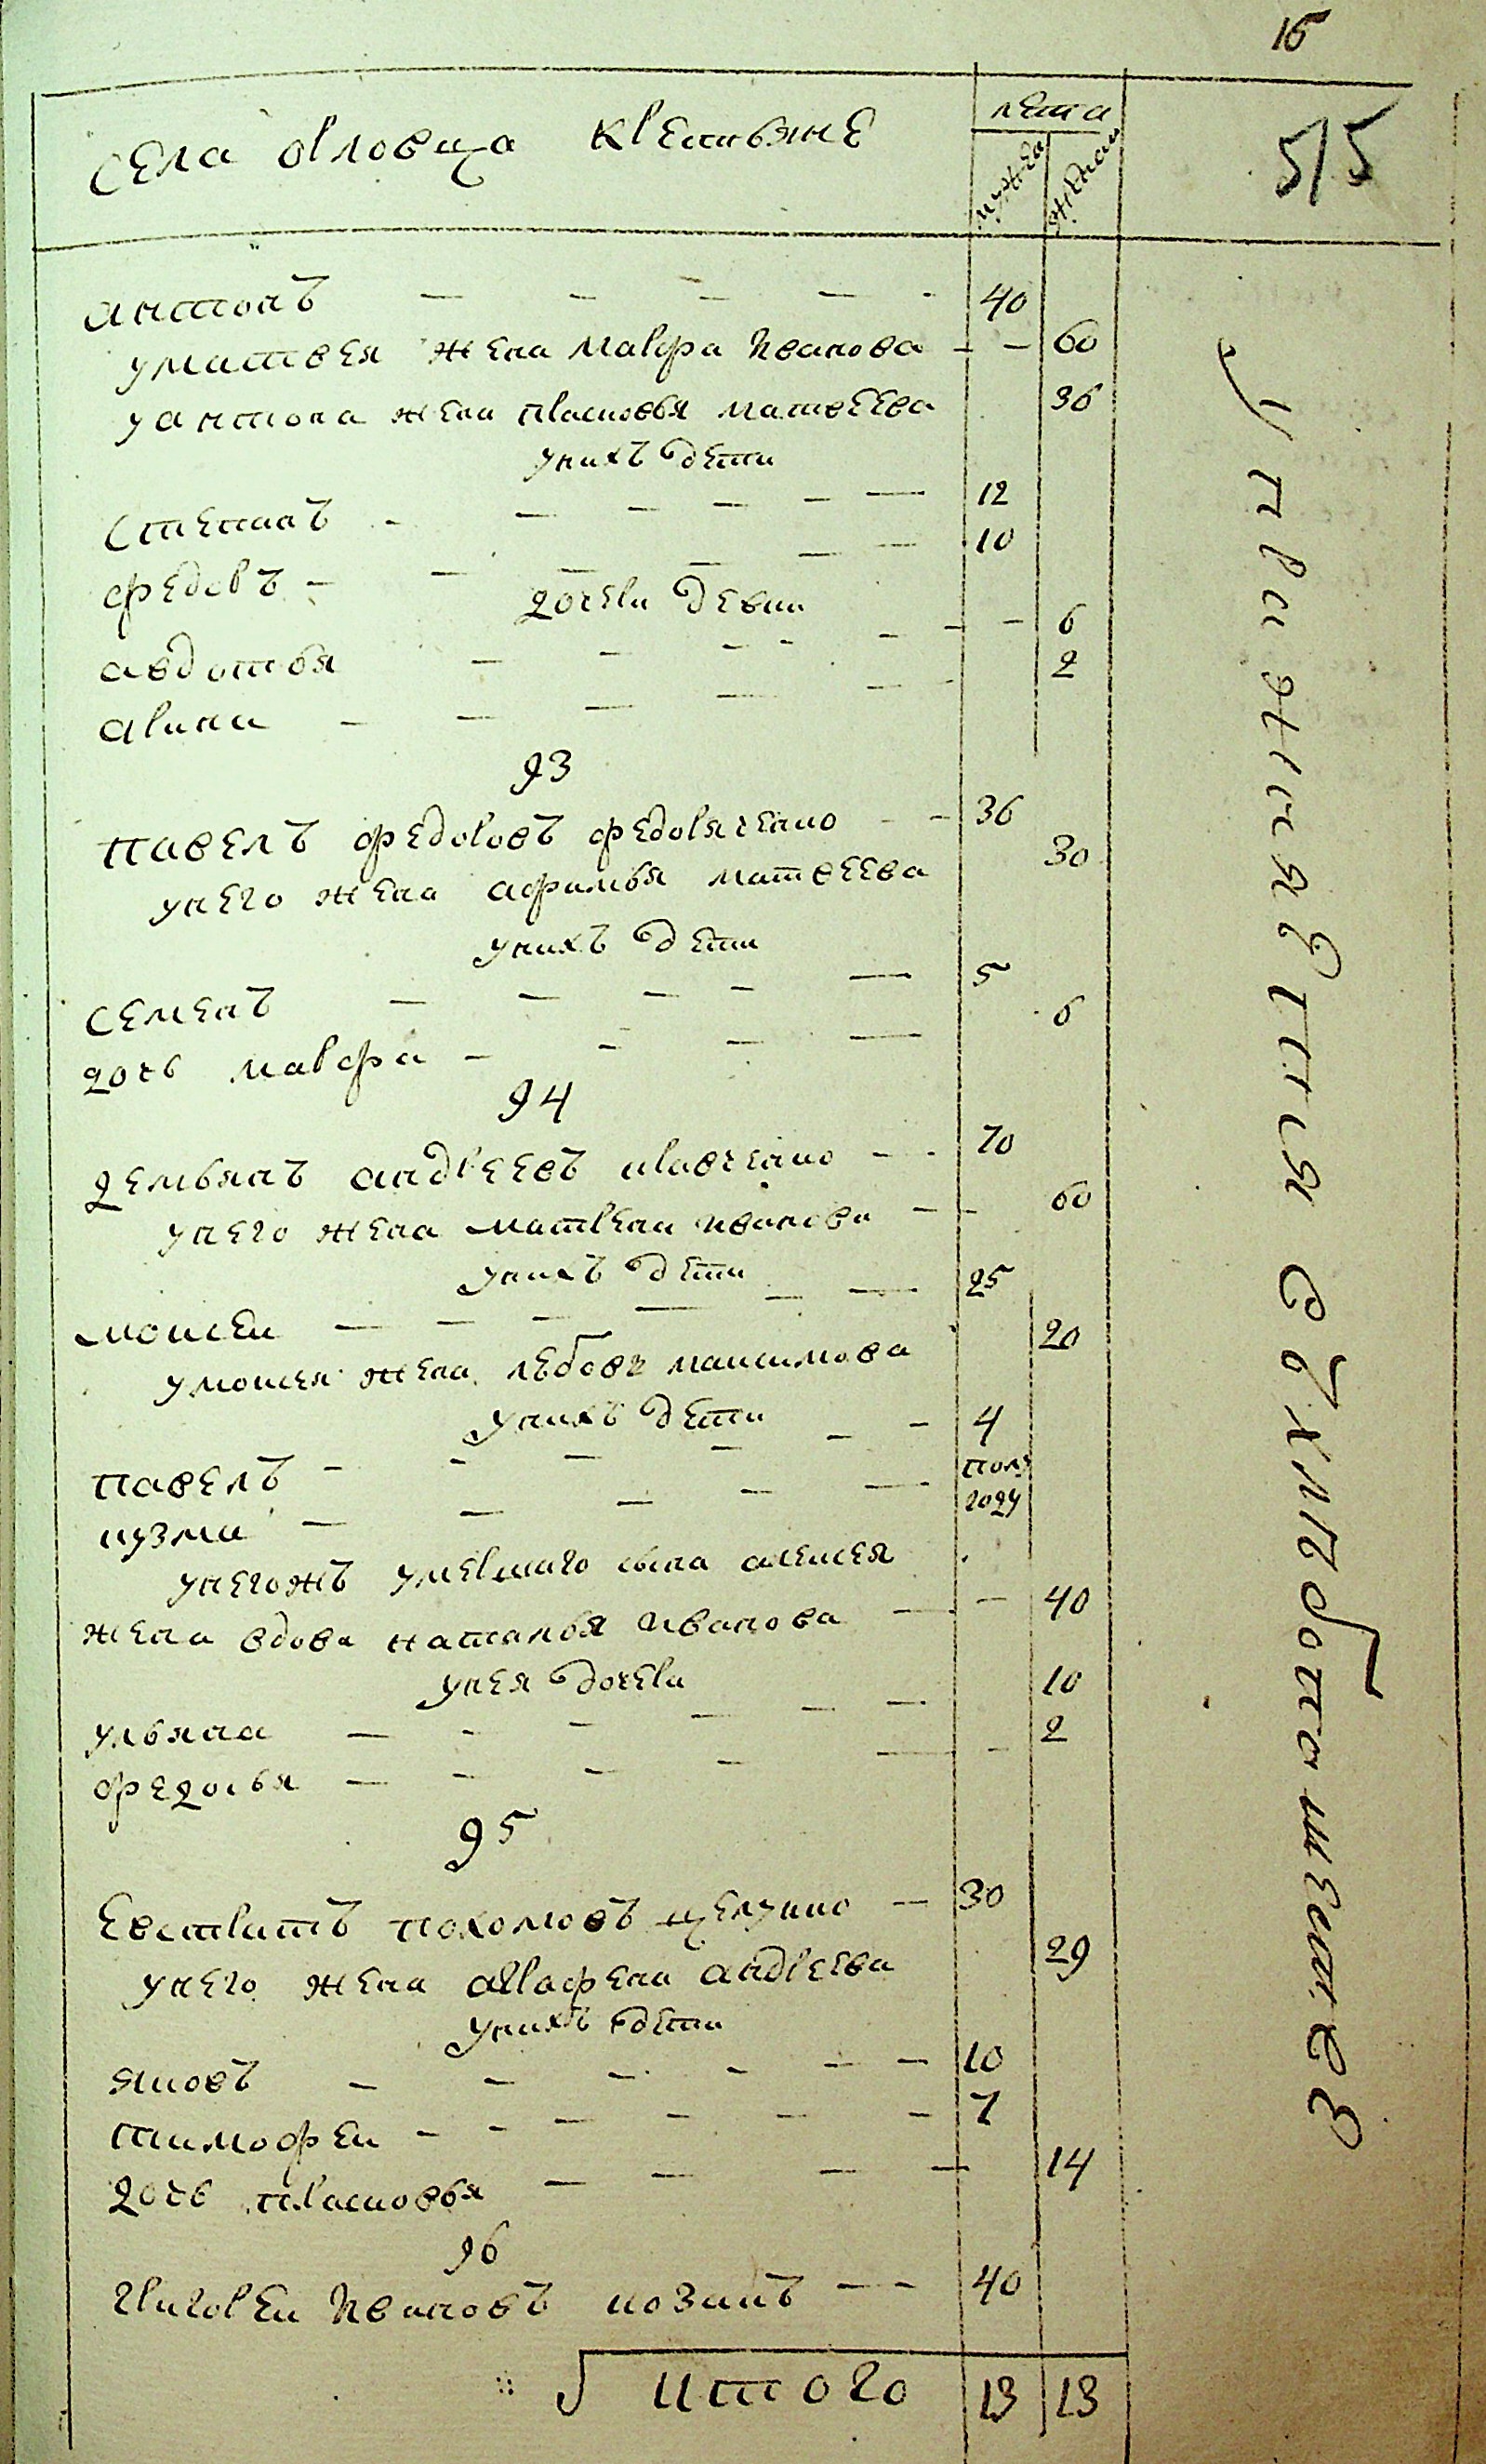 15
515
села орловца крестьяне
лета
мужеск
женскаи
антонъ 40
уматвея жена мавра иванова 60
уантона жена прасковья матвеева 36
унихъ дети
степанъ 12
федоръ 10
дочери девки
авдотья 6
арина 2
93
павелъ федоровъ федоряченко 36
унего жена афимья матвеева 30
унихъ дети
семенъ 5
дочь мавра 6
94
демьянъ андреевъ кравченко 70
унего жена матрена иванова 60
унихъ дети
мокеи 25
умокея жена лебовь максимова 20
унихъ дети
павелъ 4
кузма полгоду
унегожъ умершаго сына алексея
жена вдова наталья иванова 40
унея дочери
ульяна 10
федосья 2
95
евстратъ пахомовъ 30
унего жена аграфена андреева 29
унихъ дети
яковъ 10
тимофеи 7
дочь прасковья 14
96
григореи ивановъ козакъ 40
итого 13 13